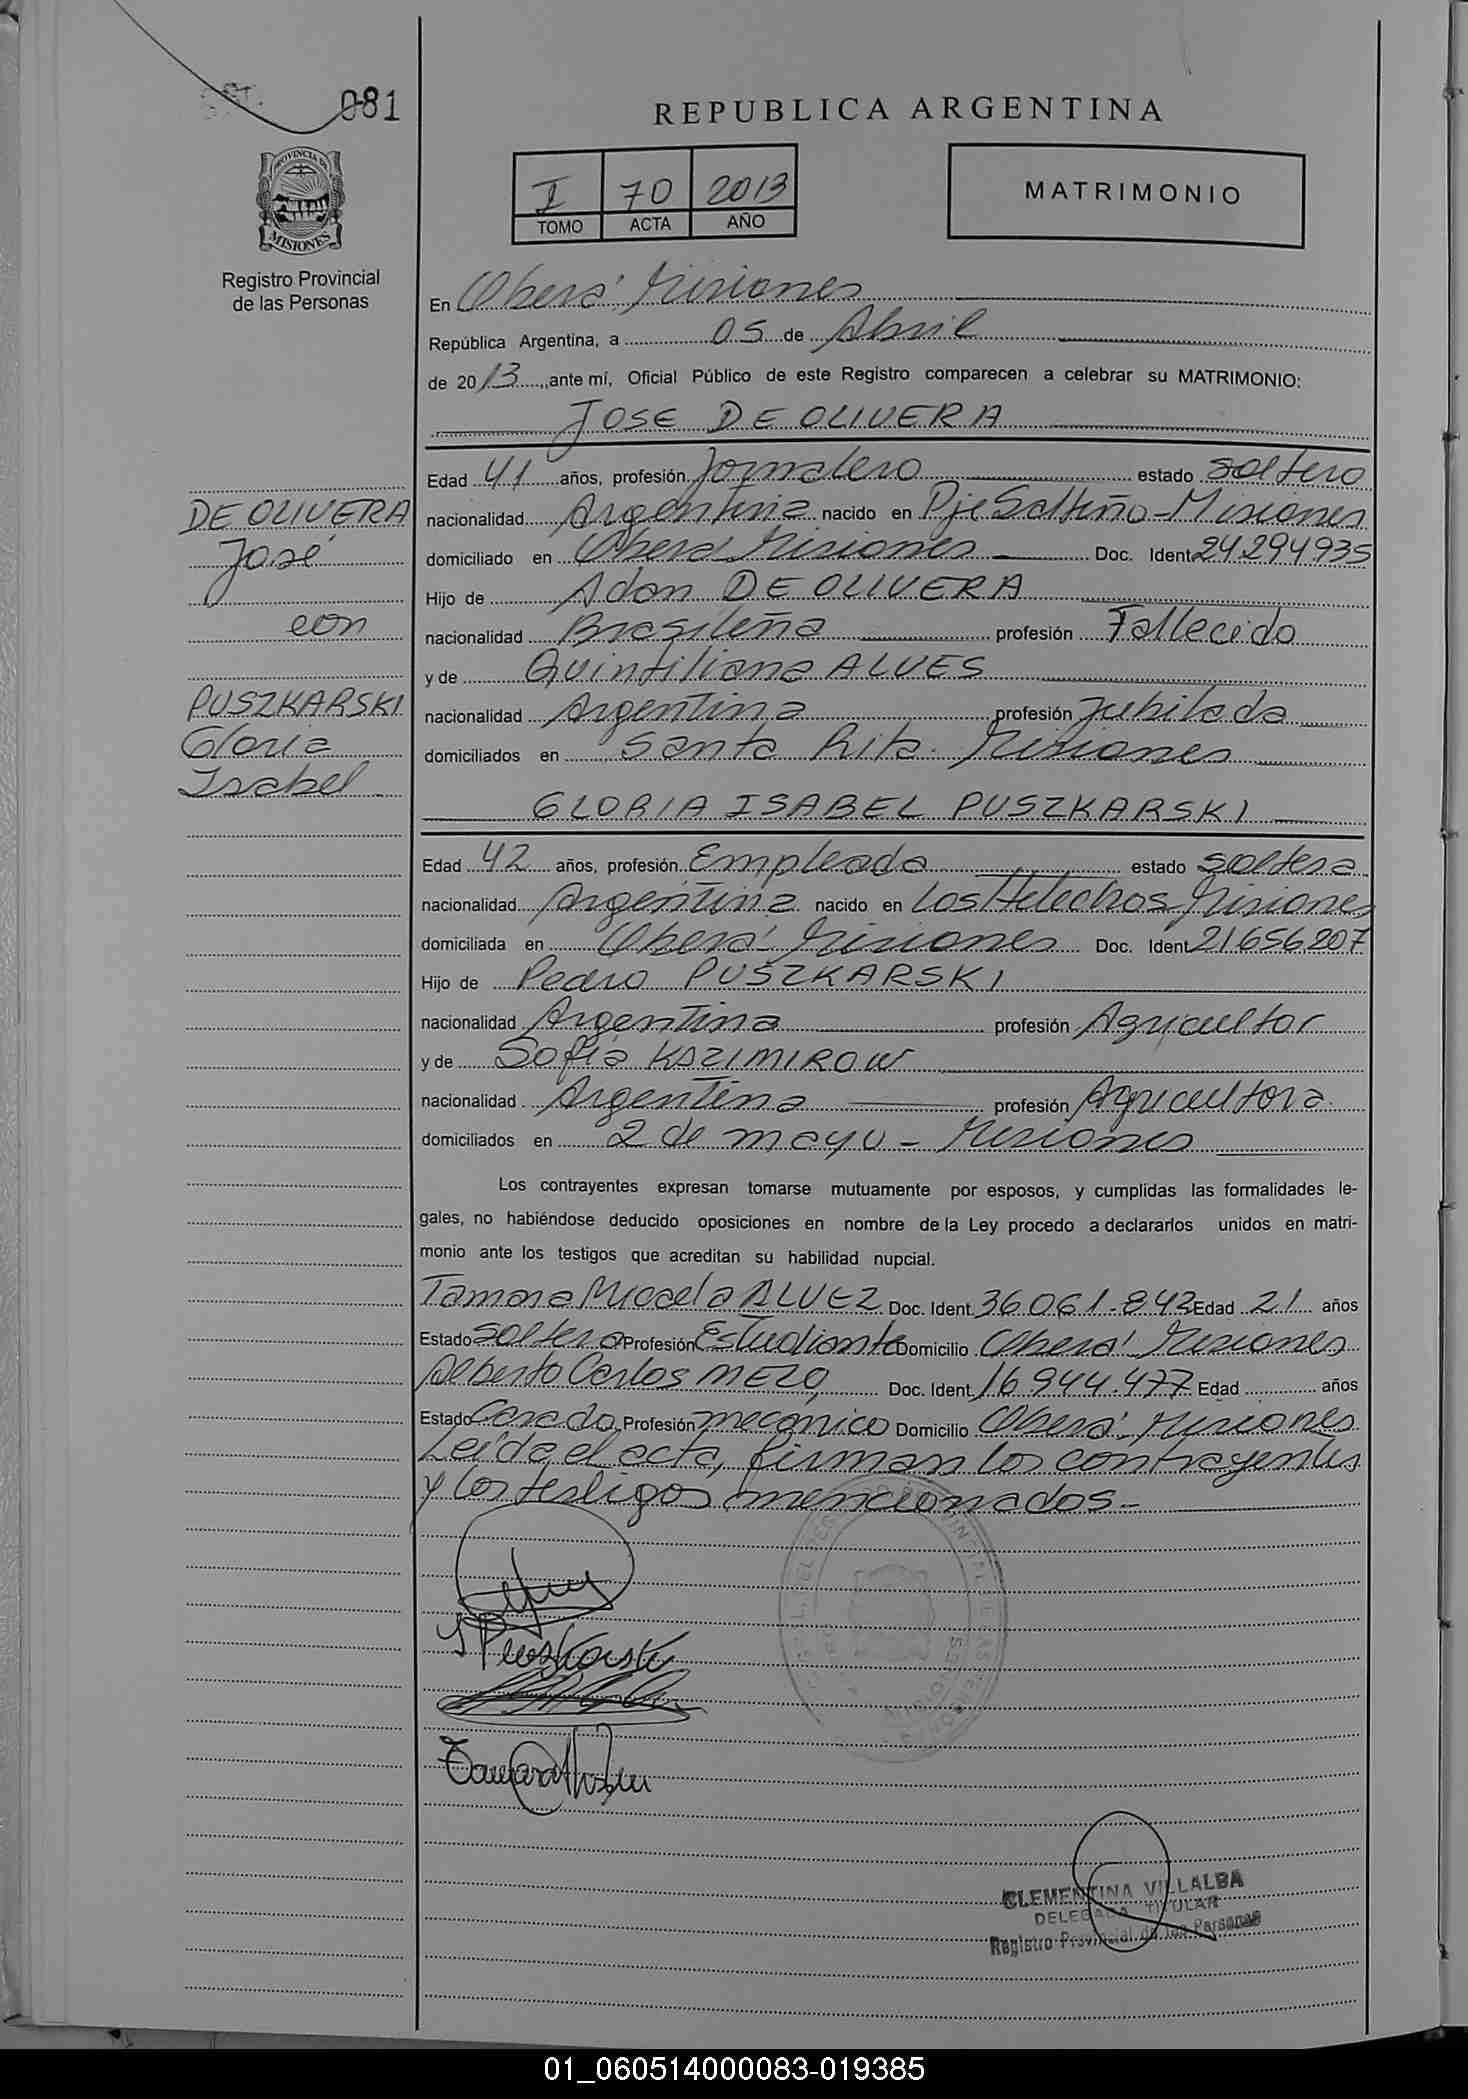 081
PROVINCIA DE
MISIONES
Registro Provincial
de las Personas
REPUBLICA ARGENTINA
I 70 2013
TOMO ACTA AÑO
MATRIMONIO
En Oberá Misiones
República Argentina, a 05 de Abril
de 2013, ante mí, Oficial Público de este Registro comparecen a celebrar su MATRIMONIO:
JOSE DE OLIVERA
Edad 41 años, profesión Jornalero estado soltero
nacionalidad Argentina nacido en Pje Salteño - Misiones
domiciliado en Oberá Misiones Doc. Ident. 24.294.935
Hijo de Adan DE OLIVERA
nacionalidad Brasileña profesión Fallecido
y de Quintiliana ALVES
nacionalidad Argentina profesión Jubilada
domiciliados en Santa Rita. Misiones
GLORIA ISABEL PUSZKARSKI
Edad 42 años, profesión Empleada estado soltera
nacionalidad Argentina nacido en Los Helechos Misiones
domiciliada en Oberá - Misiones Doc. Ident. 21.656.207
Hijo de Pedro PUSZKARSKI
nacionalidad Argentina profesión Agricultor
y de Sofia KAZIMIROW
nacionalidad Argentina profesión Agricultora
domiciliados en 2 de mayo - Misiones
Los contrayentes expresan tomarse mutuamente por esposos, y cumplidas las formalidades le-
gales, no habiéndose deducido oposiciones en nombre de la Ley procedo a declararlos unidos en matri-
monio ante los testigos que acreditan su habilidad nupcial.
Tamara Micaela ALVEZ Doc. Ident. 36.061.842 Edad 21 años
Estado soltera Profesión Estudiante Domicilio Oberá Misiones
Alberto Carlos MEZO, Doc. Ident. 16.944.477 Edad años
Estado Casado Profesión mecanico Domicilio Oberá - Misiones
Leída el acta, firman los contrayentes
y los testigos mencionados.-
DE OLIVERA
José
con
PUSZKARSKI
Gloria
Isabel
CLEMENTINA VILLALBA
DELEGADA TITULAR
Registro Provincial de las Personas
01_060514000083-019385